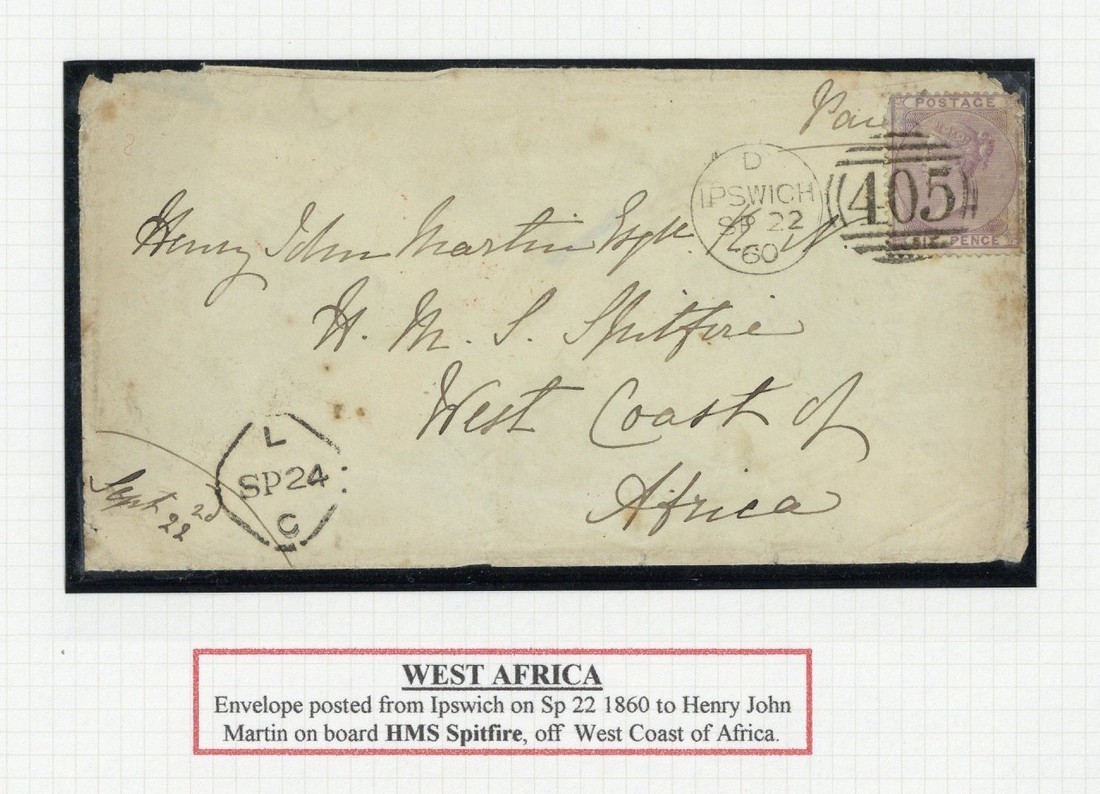 Paid
POSTAGE
SIX PENCE
D
IPSWICH
SP 22
60
405
Henry John Martin Esqre R. N.
H. M. S. Spitfire
West Coast of
Africa
Sept 22nd
L
SP24
C
WEST AFRICA
Envelope posted from Ipswich on Sp 22 1860 to Henry John
Martin on board HMS Spitfire, off West Coast of Africa.